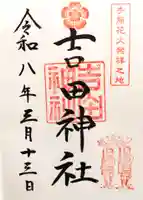 手筒花火発祥之地
吉田神社
令和八年三月十三日